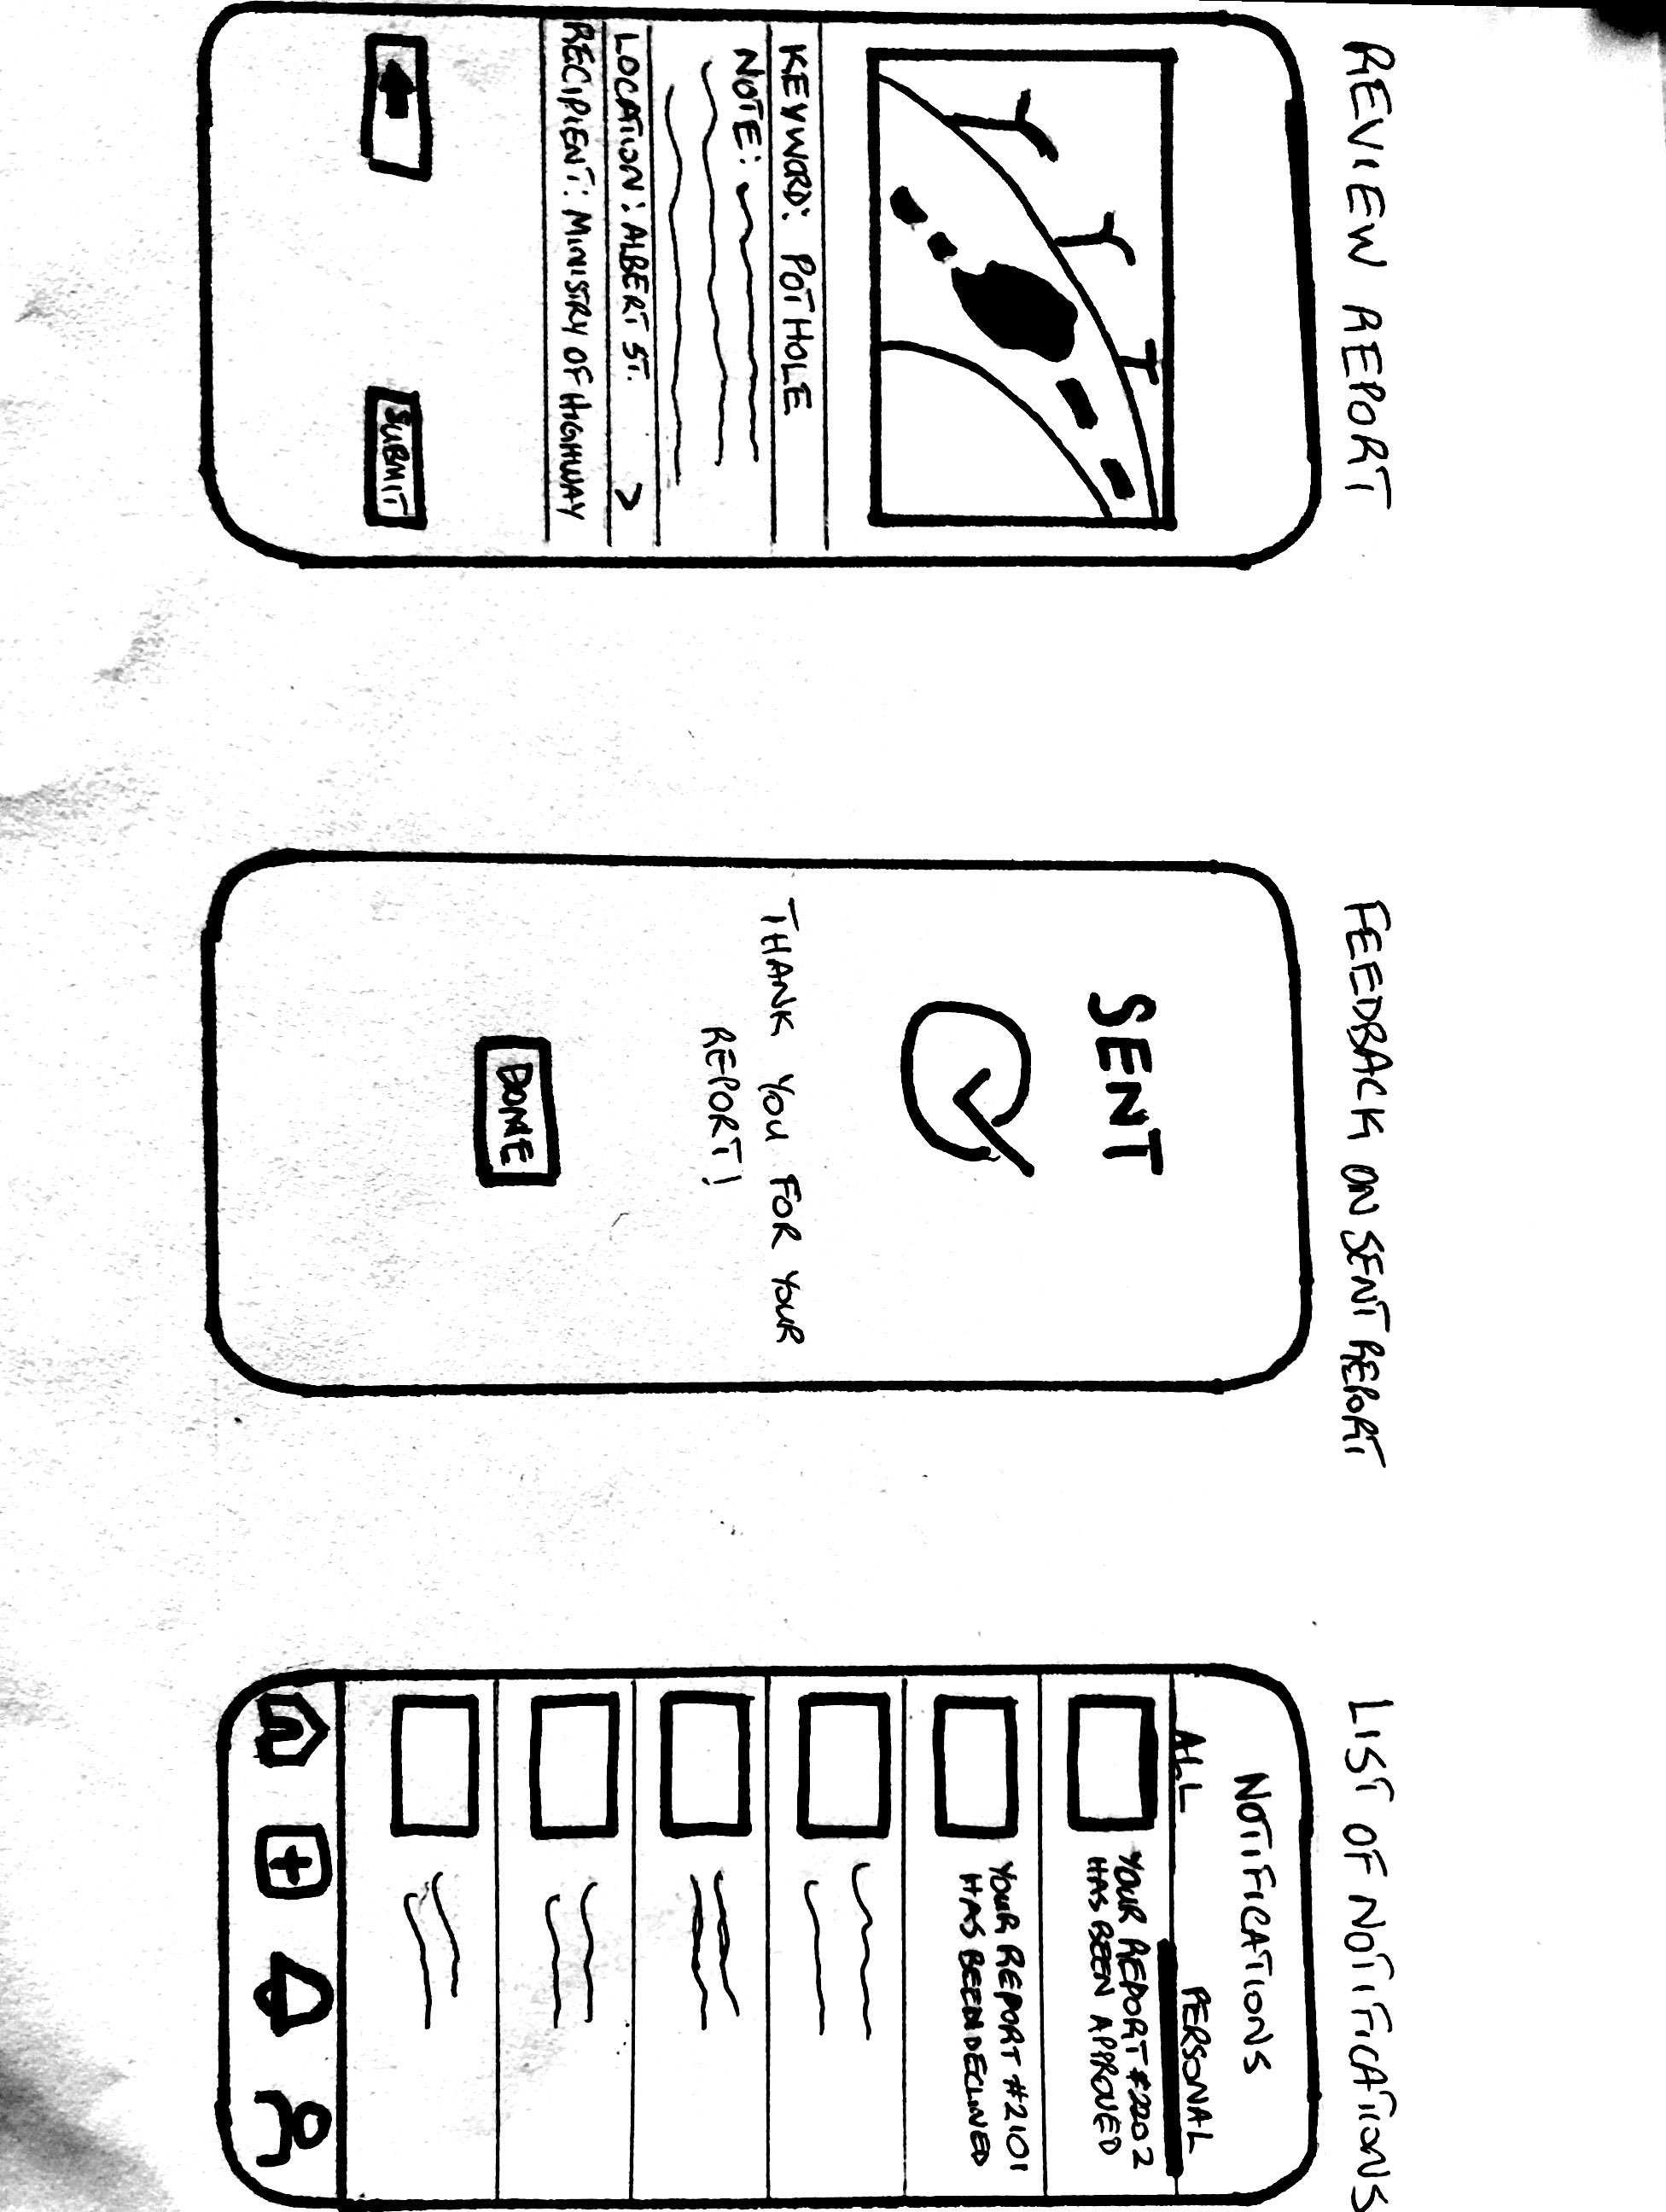 REVIEW REPORT
KEYWORD: POTHOLE
NOTE:
LOCATION: ALBERT ST. >
RECIPIENT: MINISTRY OF HIGHWAY
SUBMIT
FEEDBACK ON SENT REPORT
SENT
THANK YOU FOR YOUR
REPORT!
DONE
LIST OF NOTIFICATIONS
NOTIFICATIONS
ALL PERSONAL
YOUR REPORT #2202
HAS BEEN APPROVED
YOUR REPORT #2101
HAS BEEN DECLINED